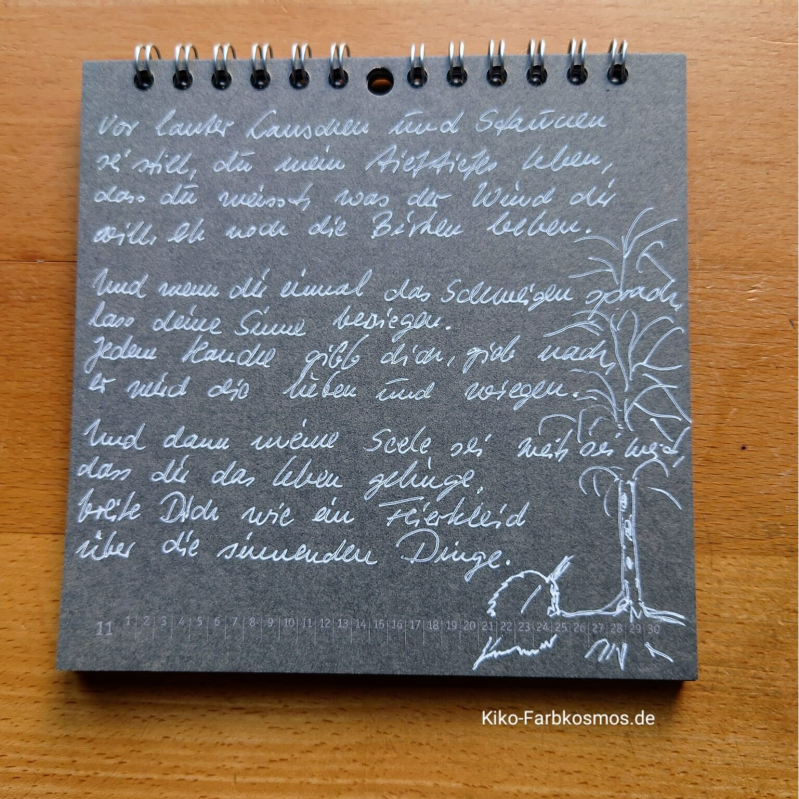 Vor lauter Lauschen und Staunen
sei still, du mein tieftiefes Leben,
dass du weisst, was der Wind dir
will, eh noch die Birken beben.
Und wenn dir einmal das Schweigen sprach,
lass deine Sinne besiegen.
Jedem Hauche gibt dich, gieb nach,
er wird dich lieben und wiegen.
Und dann meine Seele sei weit, sei weit,
dass dir das Leben gelinge,
breite Dich wie ein Feierkleid
über die sinnenden Dinge.
11 1 2 3 4 5 6 7 8 9 10 11 12 13 14 15 16 17 18 19 20 21 22 23 24 25 26 27 28 29 30
Kiko-Farbkosmos.de